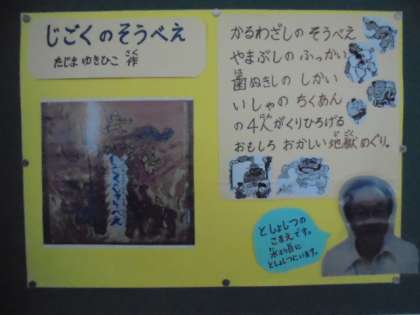 じごくのそうべえ
たじまゆきひこ 作
さく
じごくのそうべえ
かるわざしの そうべえ
やまぶしの ふっかい
歯ぬきしの しかい
いしゃの ちくあん
の4人がくりひろげる
おもしろ おかしい地獄めぐり。
としょしつの
こまえです。
としょしつにいます。